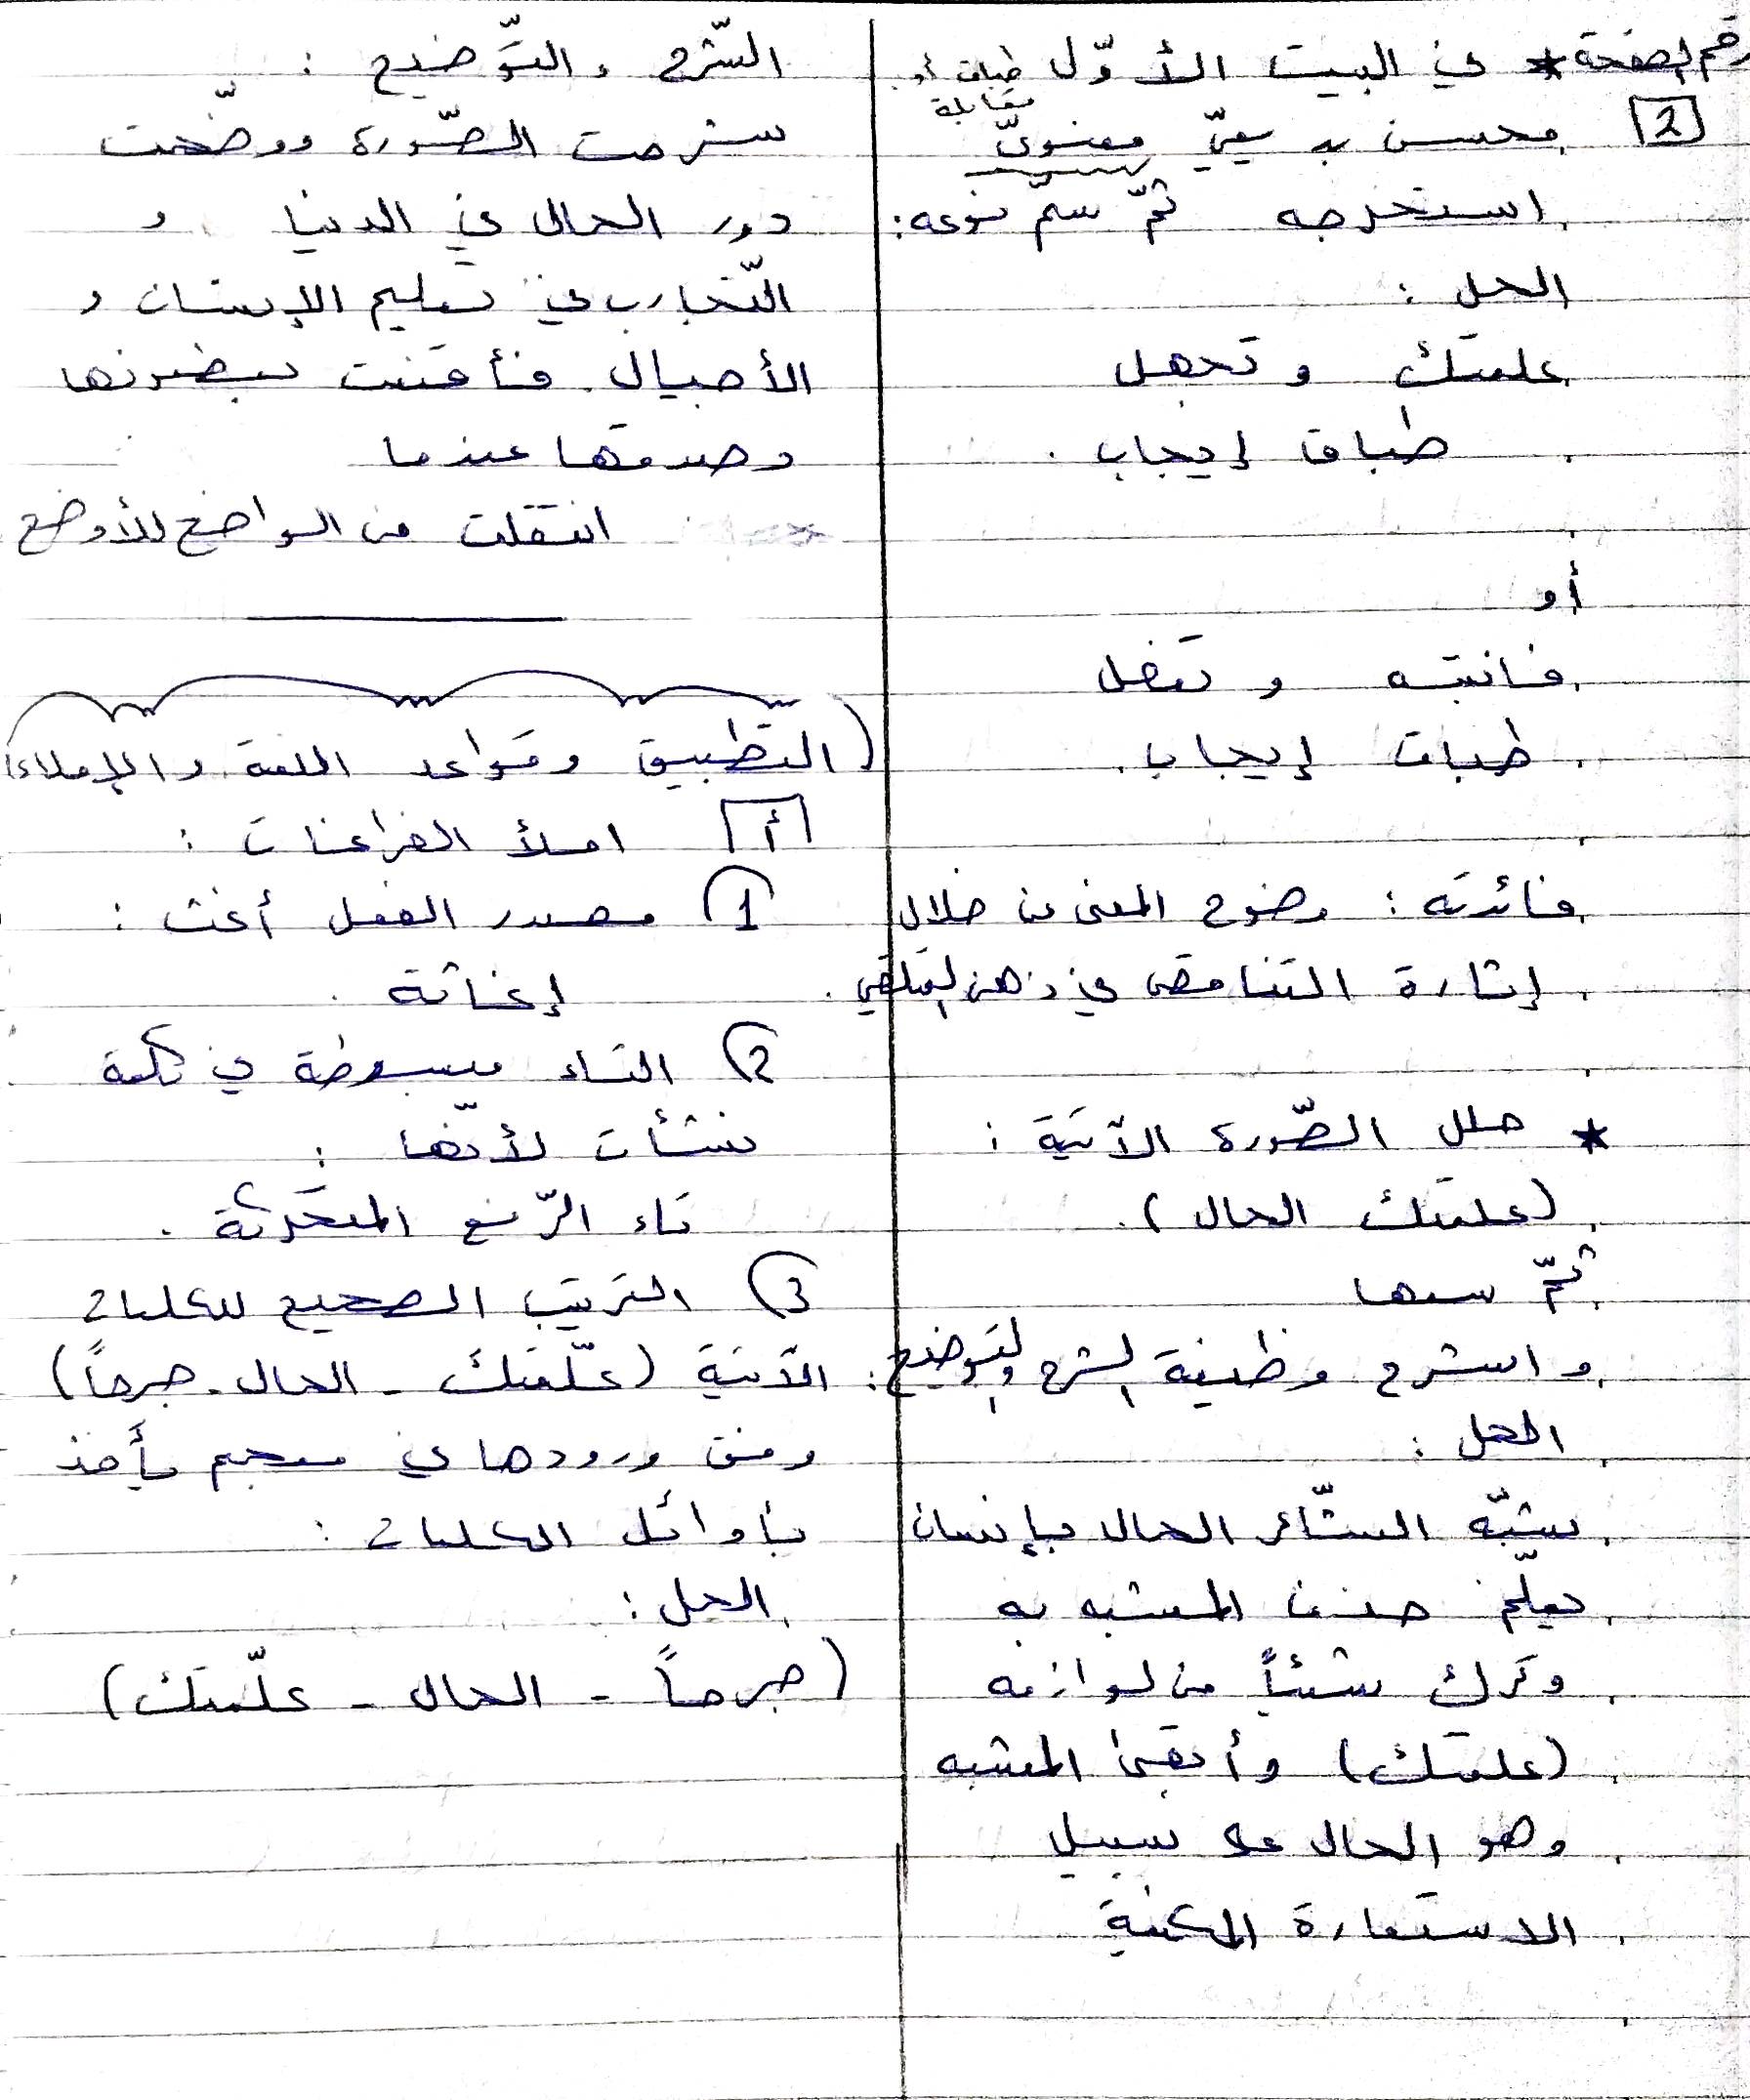 رقم الصفحة
2
* في البيت الأوّل طباق أو مقابلة
محسن بديعيّ معنويّ
استخرجه ثمّ سمّ نوعه:
الحل:
علمتك وتجهل
طباق إيجاب.
أو
فانتبه وتغفل
طباق إيجاب.
فائدته: وضوح المعنى من خلال
إثارة التناقض في ذهن المتلقي.
* حلل الصّورة الآتية:
(علمتك الحال).
ثمّ سمها
واشرح وظيفة الشرح والتوضيح:
الحل:
يشبّه الشّاعر الحال بإنسان
يعلّم حذف المشبه به
وترك شيئاً من لوازمه
(علمتك) وأبقى المشبه
وهو الحال على سبيل
الاستعارة المكنية
الشّرح والتّوضيح:
شرحت الصّورة ووضّحت
دور الحال في الدنيا و
التّجارب في تعليم الإنسان و
الأجيال. فأقنعت بمضمونها
وصدقها عندما
انتقلت من الواضح للأوضح
(التّطبيق وقواعد اللغة والإملاء)
أ املأ الفراغات:
1) مصدر الفعل أغث:
إغاثة.
2) التاء مبسوطة في كلمة
نشأت لأنّها:
تاء الرّفع المتحركة.
3) الترتيب الصحيح للكلمات
الآتية (علّمتكَ - الحال - جرحاً)
وفق ورودها في معجم يأخذ
بأوائل الكلمات:
الحل:
(جرحاً - الحال - علّمتك)